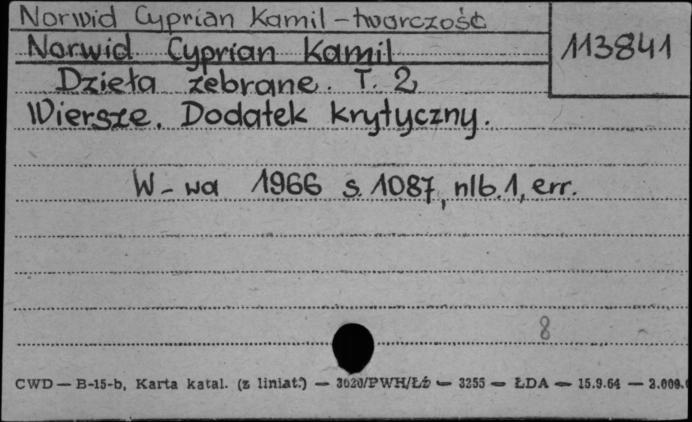 Norwid Cyprian Kamil - twórczość
113841
Norwid Cyprian Kamil
Dzieła zebrane. T. 2
Wiersze. Dodatek krytyczny.
W-wa 1966 s. 1087, nlb. 1, err.
8
CWD — B-15-b, Karta katal. (z liniat.) — 3020/PWH/Łż — 3255 — ŁDA — 15.9.64 — 2.000.0